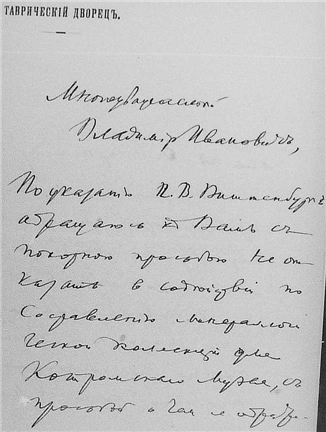 ТАВРИЧЕСКІЙ ДВОРЕЦЪ.
Многоуважаемый
Владиміръ Ивановичъ,
По указанію П. В. Виттенбурга
обращаюсь къ Вамъ съ
покорною просьбою не от
казать в содѣйствіи по
составленію минералоги
ческой коллекціи для
Костромского Музея, съ
просьбой о чем я обра